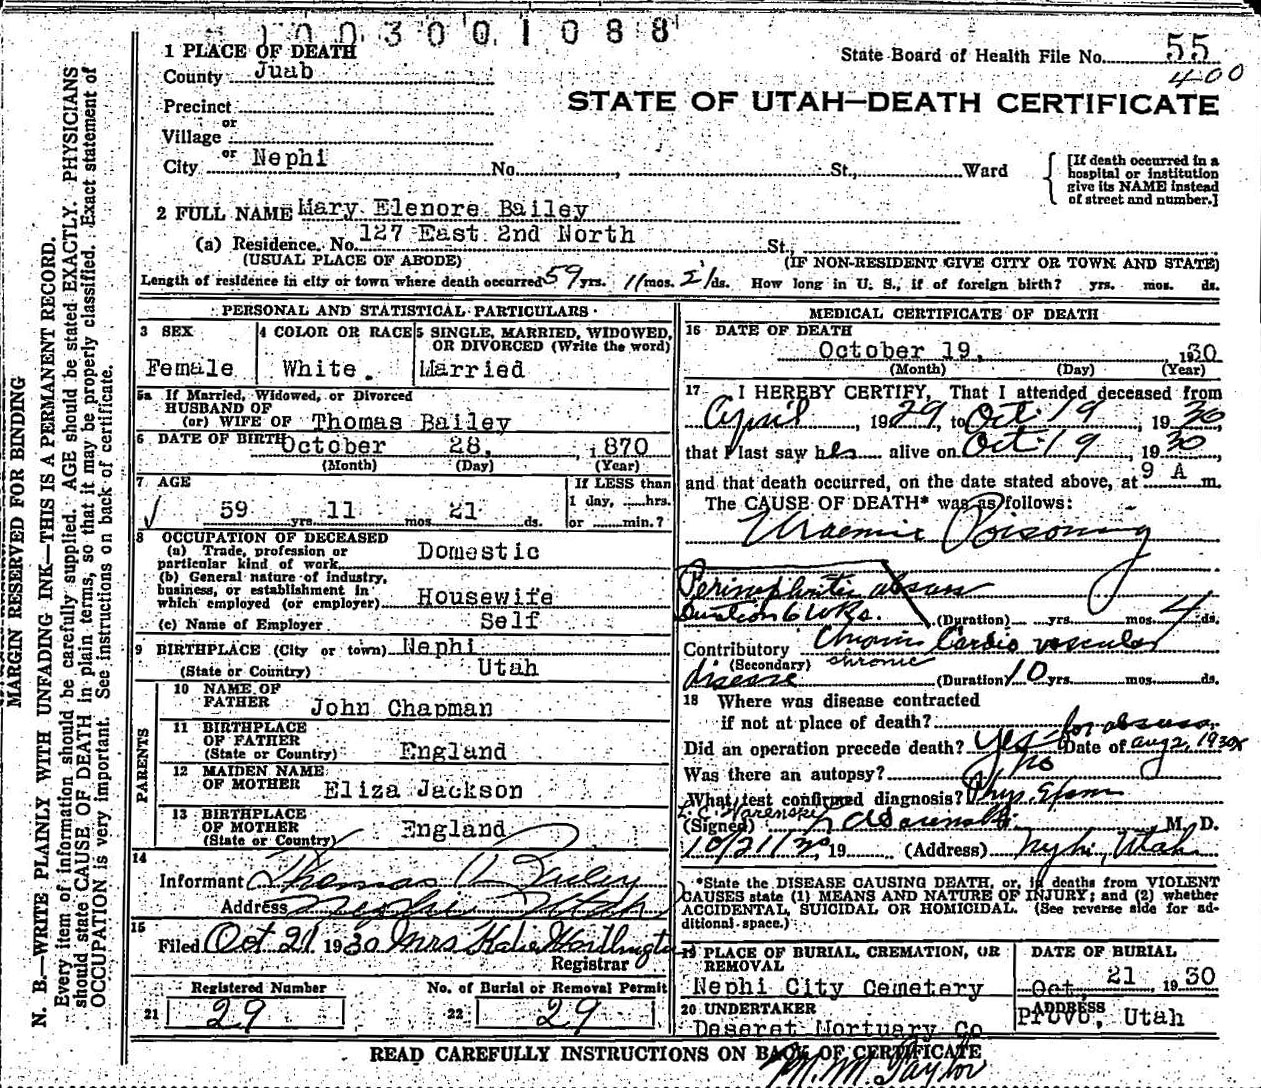 1003001088
1 PLACE OF DEATH
State Board of Health File No. 55
400
County Juab
STATE OF UTAH—DEATH CERTIFICATE
Precinct
or
Village
or
City Nephi No. , St., Ward
[If death occurred in a
hospital or institution
give its NAME instead
of street and number.]
2 FULL NAME Mary Elenore Bailey
(a) Residence. No. 127 East 2nd North St.,
(USUAL PLACE OF ABODE) (IF NON-RESIDENT GIVE CITY OR TOWN AND STATE)
Length of residence in city or town where death occurred 59 yrs. 11 mos. 21 ds. How long in U. S., if of foreign birth? yrs. mos. ds.
PERSONAL AND STATISTICAL PARTICULARS
3 SEX
Female
4 COLOR OR RACE
White.
5 SINGLE, MARRIED, WIDOWED,
OR DIVORCED (Write the word)
Married
5a If Married, Widowed, or Divorced
HUSBAND OF
(or) WIFE OF Thomas Bailey
6 DATE OF BIRTH October 28, 1870
(Month) (Day) (Year)
7 AGE
59 yrs. 11 mos. 21 ds.
If LESS than
1 day, hrs.
or min.?
8 OCCUPATION OF DECEASED
(a) Trade, profession or
particular kind of work Domestic
(b) General nature of industry,
business, or establishment in
which employed (or employer) Housewife
(c) Name of Employer Self
9 BIRTHPLACE (City or town) Nephi
(State or Country) Utah
PARENTS
10 NAME OF
FATHER John Chapman
11 BIRTHPLACE
OF FATHER
(State or Country) England
12 MAIDEN NAME
OF MOTHER Eliza Jackson
13 BIRTHPLACE
OF MOTHER
(State or Country) England
14
Informant Thomas Bailey
Address Nephi Utah
15
Filed Oct 21 1930 Mrs
Registrar
Registered Number
21 29
No. of Burial or Removal Permit
22 29
MEDICAL CERTIFICATE OF DEATH
16 DATE OF DEATH
October 19, 1930
(Month) (Day) (Year)
17 I HEREBY CERTIFY, That I attended deceased from
April, 1929, to Oct. 19, 1930,
that I last saw h alive on Oct. 19, 1930,
and that death occurred, on the date stated above, at 9 A m.
The CAUSE OF DEATH* was as follows:
Uraemic Poisoning
Duration 6 wks. (Duration) yrs. mos. 4 ds.
Contributory Chronic Cardio vascular
(Secondary) chronic
disease (Duration) 10 yrs. mos. ds.
18 Where was disease contracted
if not at place of death?
Did an operation precede death? Yes - for abscess Date of Aug 2, 1930
Was there an autopsy? No
What test confirmed diagnosis? Phys. Exam
L. C. Warenski
(Signed) M. D.
10/21/30, 19 (Address) Nephi, Utah
*State the DISEASE CAUSING DEATH, or, in deaths from VIOLENT
CAUSES state (1) MEANS AND NATURE OF INJURY; and (2) whether
ACCIDENTAL, SUICIDAL OR HOMICIDAL. (See reverse side for ad-
ditional space.)
19 PLACE OF BURIAL, CREMATION, OR
REMOVAL
Nephi City Cemetery
DATE OF BURIAL
Oct. 21 1930
20 UNDERTAKER
Deseret Mortuary Co
ADDRESS
Provo, Utah
READ CAREFULLY INSTRUCTIONS ON BACK OF CERTIFICATE
M. M. Taylor
MARGIN RESERVED FOR BINDING
N. B.—WRITE PLAINLY WITH UNFADING INK—THIS IS A PERMANENT RECORD.
Every item of information should be carefully supplied. AGE should be stated EXACTLY. PHYSICIANS
should state CAUSE OF DEATH in plain terms, so that it may be properly classified. Exact statement of
OCCUPATION is very important. See instructions on back of certificate.